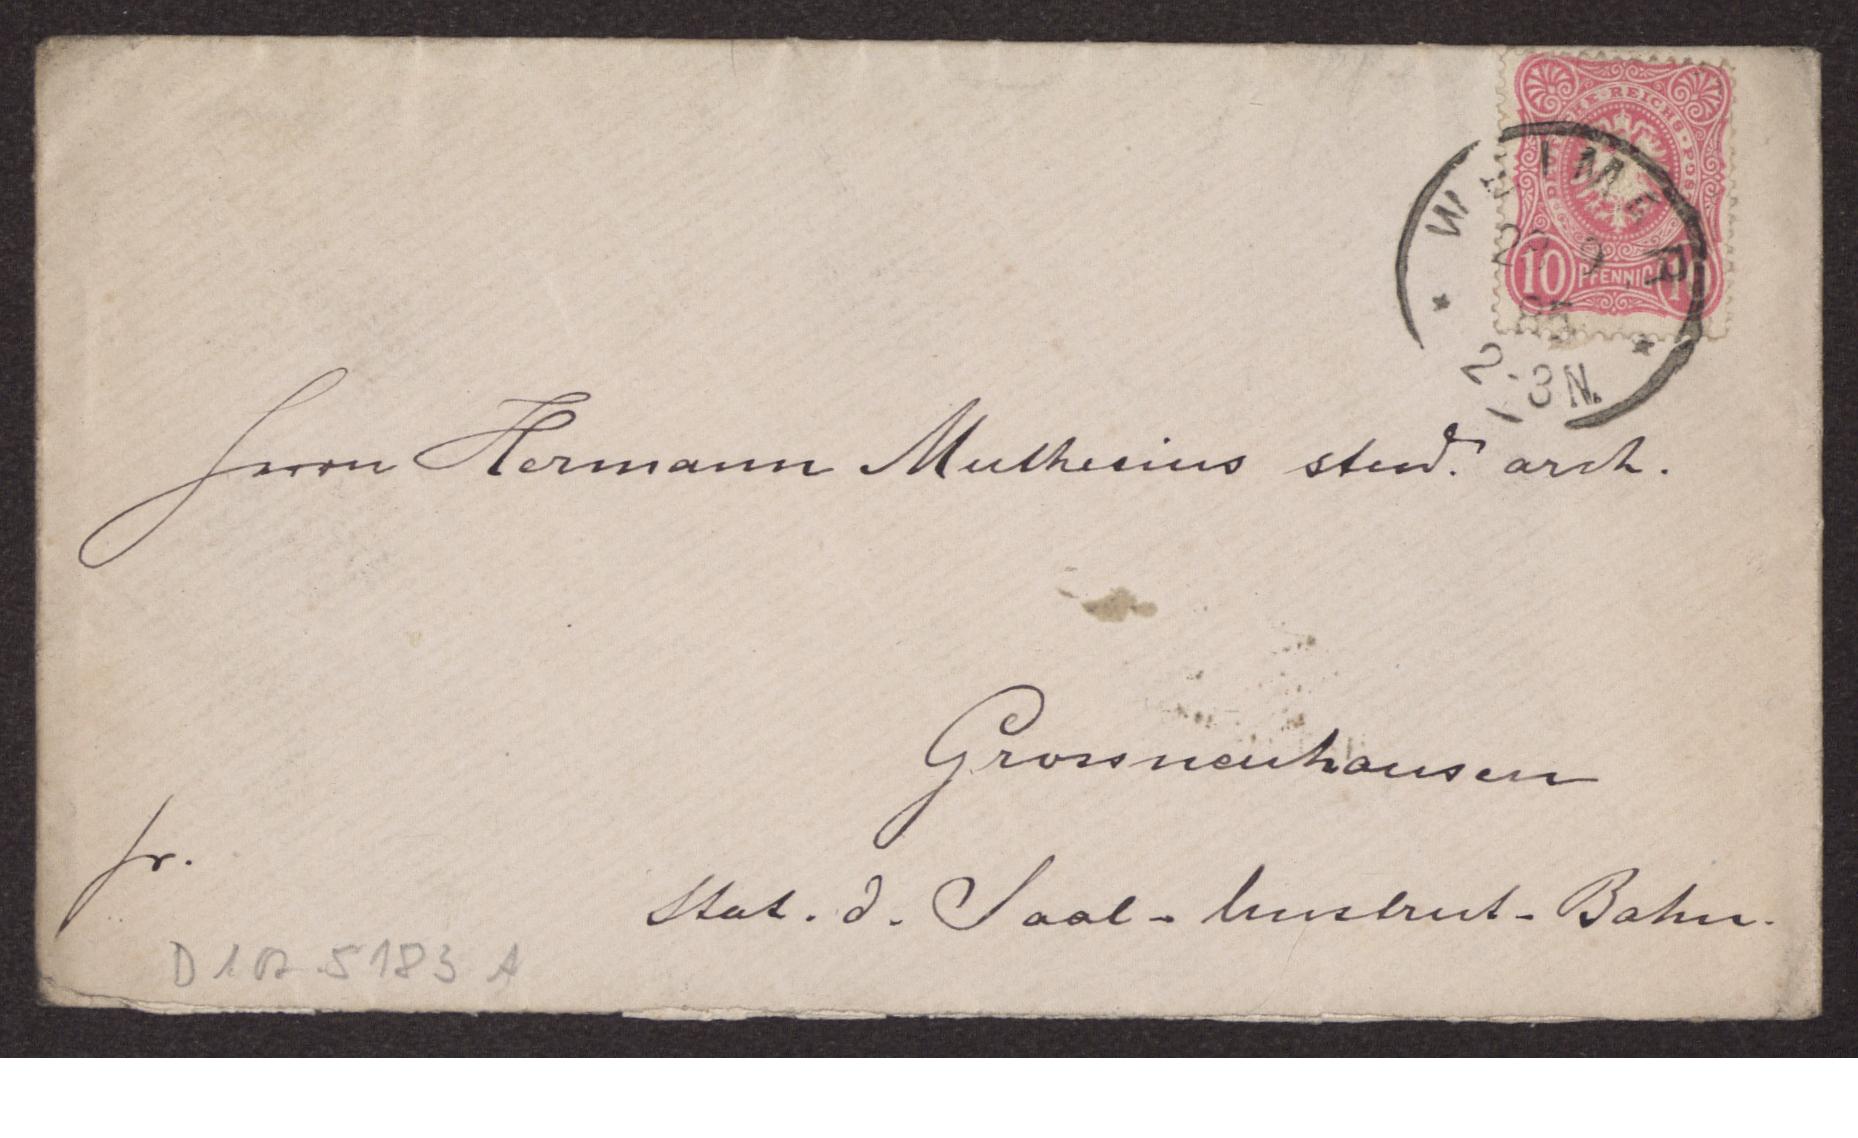 REICHS-POST
10 PFENNIG 10
WEIMAR
9
85
2-3N.
Herrn Hermann Muthesius stud. arch.
Grossneuhausen
fr.
Stat. d. Saal-Unstrut-Bahn.
D 102-5183 A